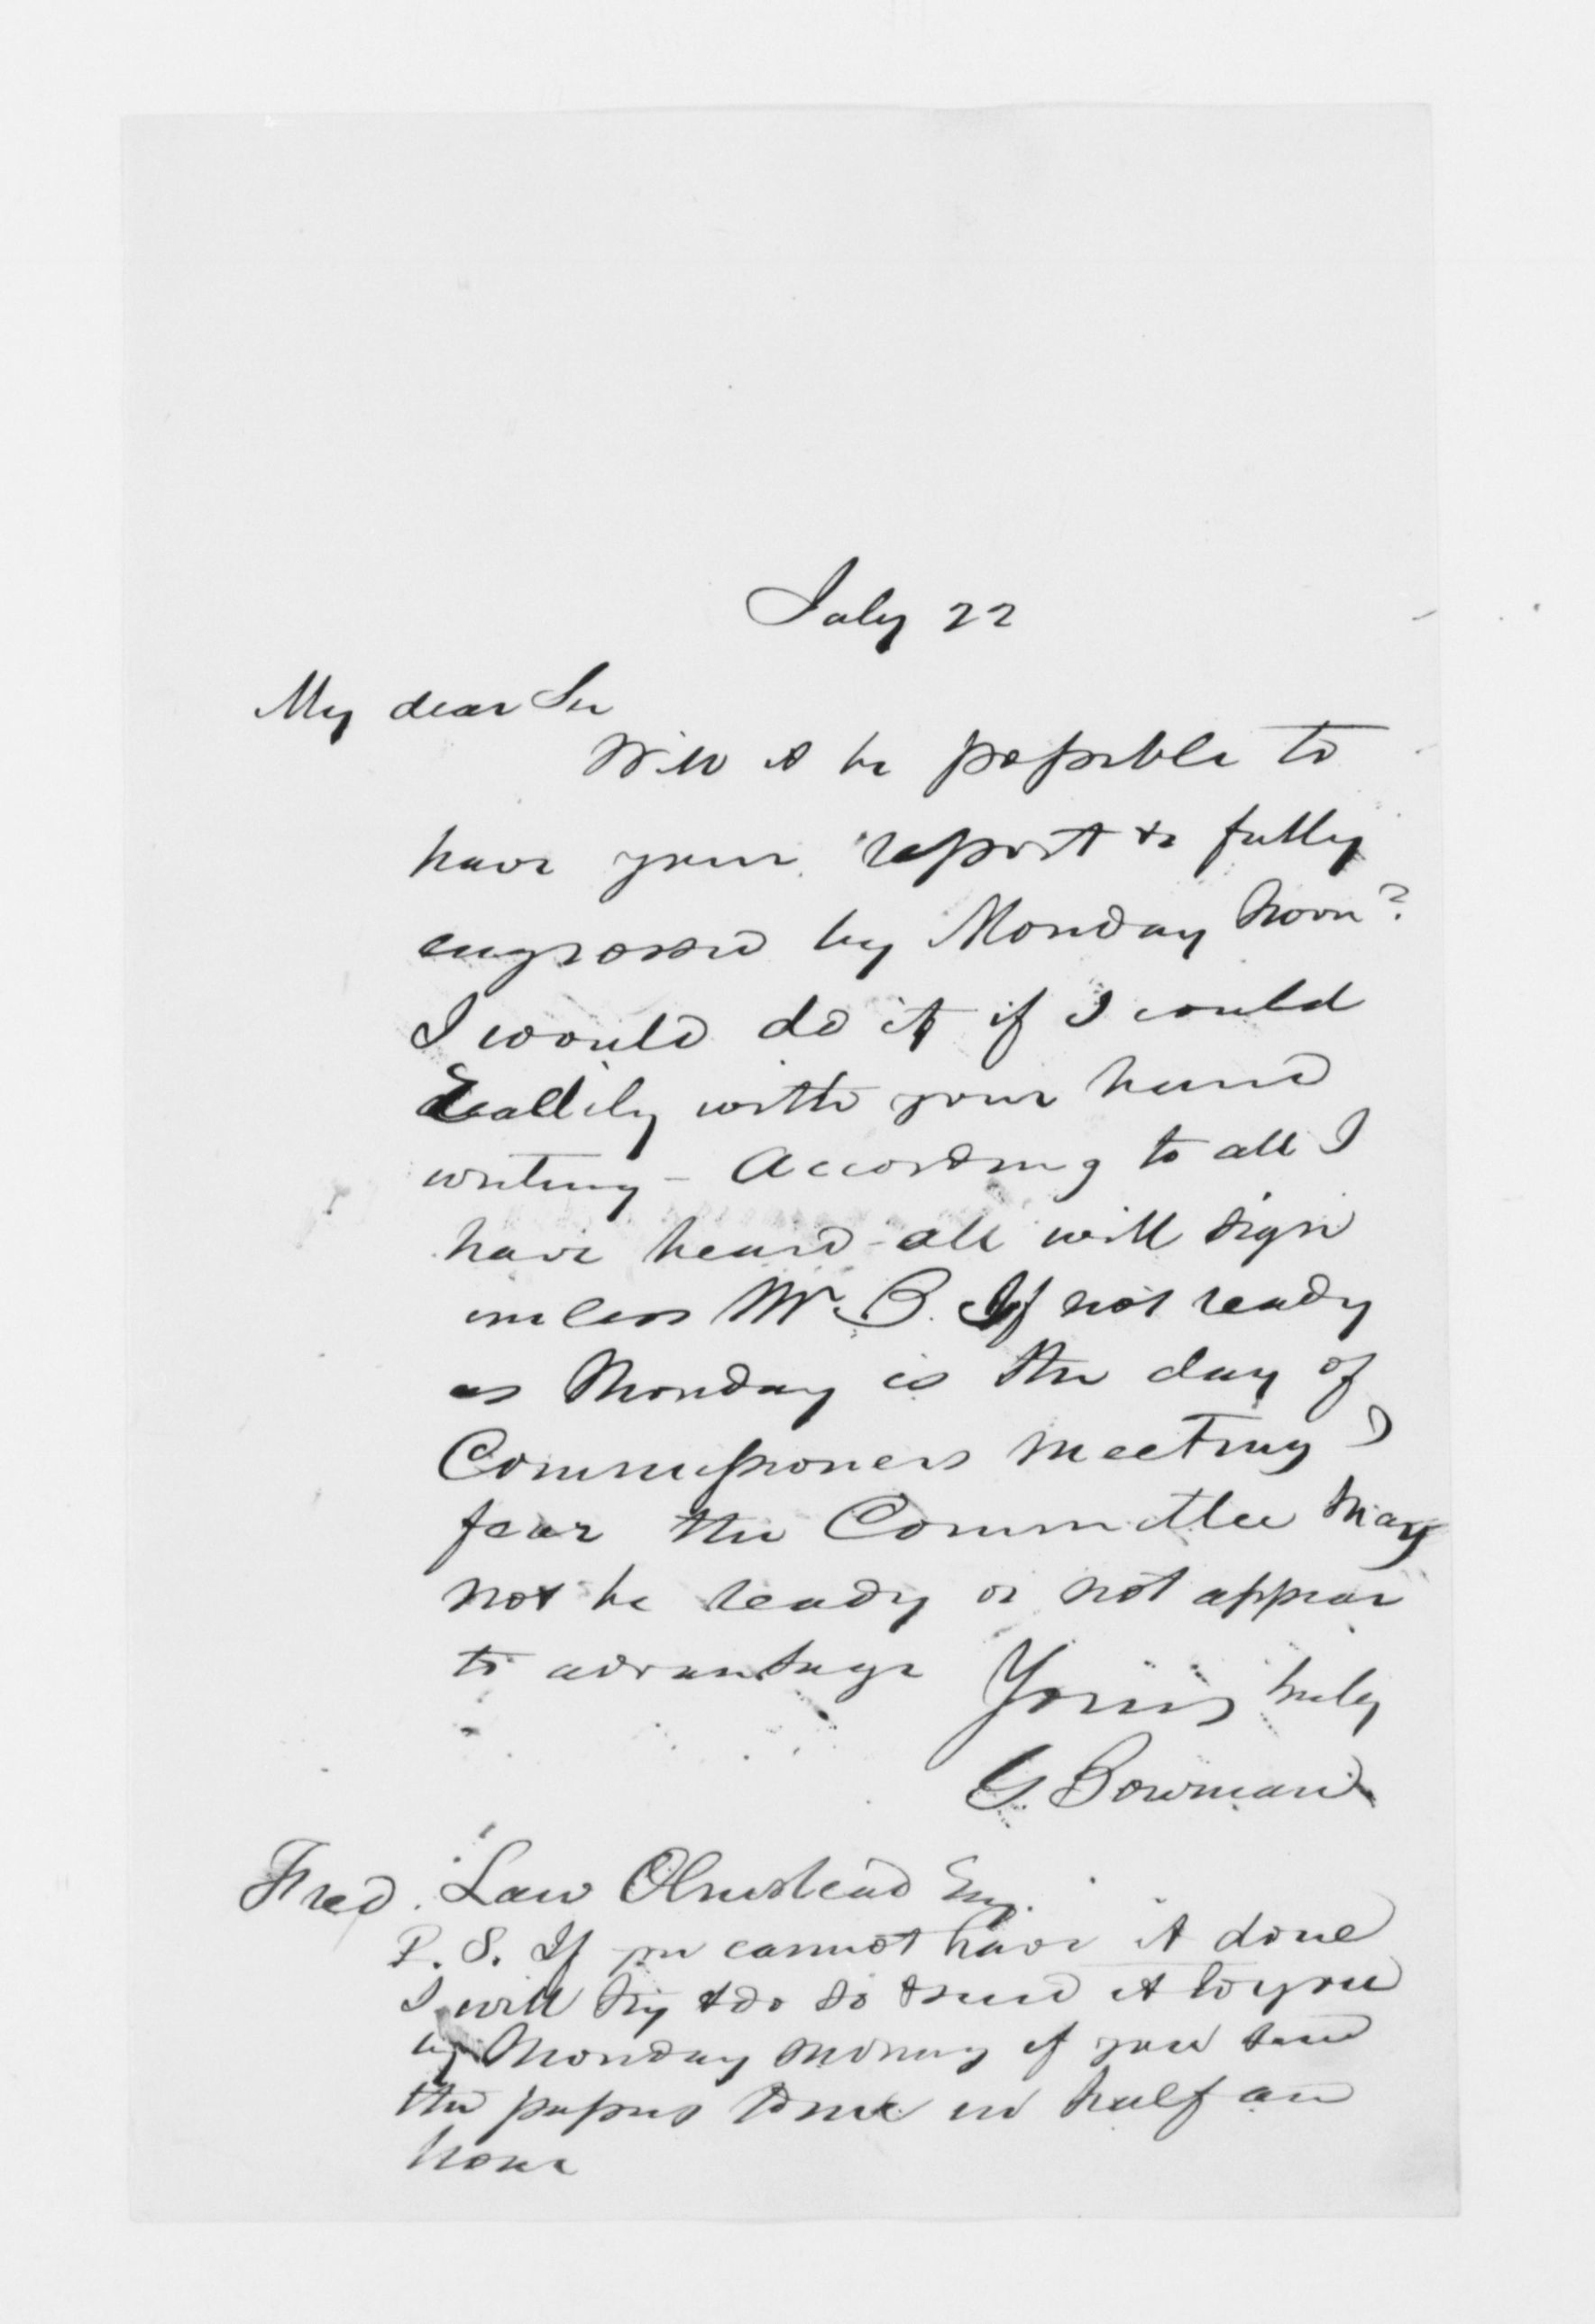 July 22
My dear Sir
Will it be possible to
have your report &c fully
engrossed by Monday noon?
I would do it if I could
readily with your hand
writing - According to all I
have heard - all will sign
unless Mr. B. If not ready
as Monday is the day of
Commissioners meeting I
fear the Committee may
not be ready or not appear
to advantage
Yours truly
G Bowman
Fred. Law Olmstead Esq.
P. S. If you cannot have it done
I will try & do so & send it to you
by Monday morning if you send
the papers to me in half an
hour